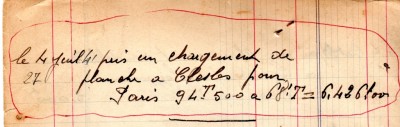 le 4 juil 41 pris un chargement de
27 planche a Clesles pour
Paris 94T500 a 68f T = 6.426f00